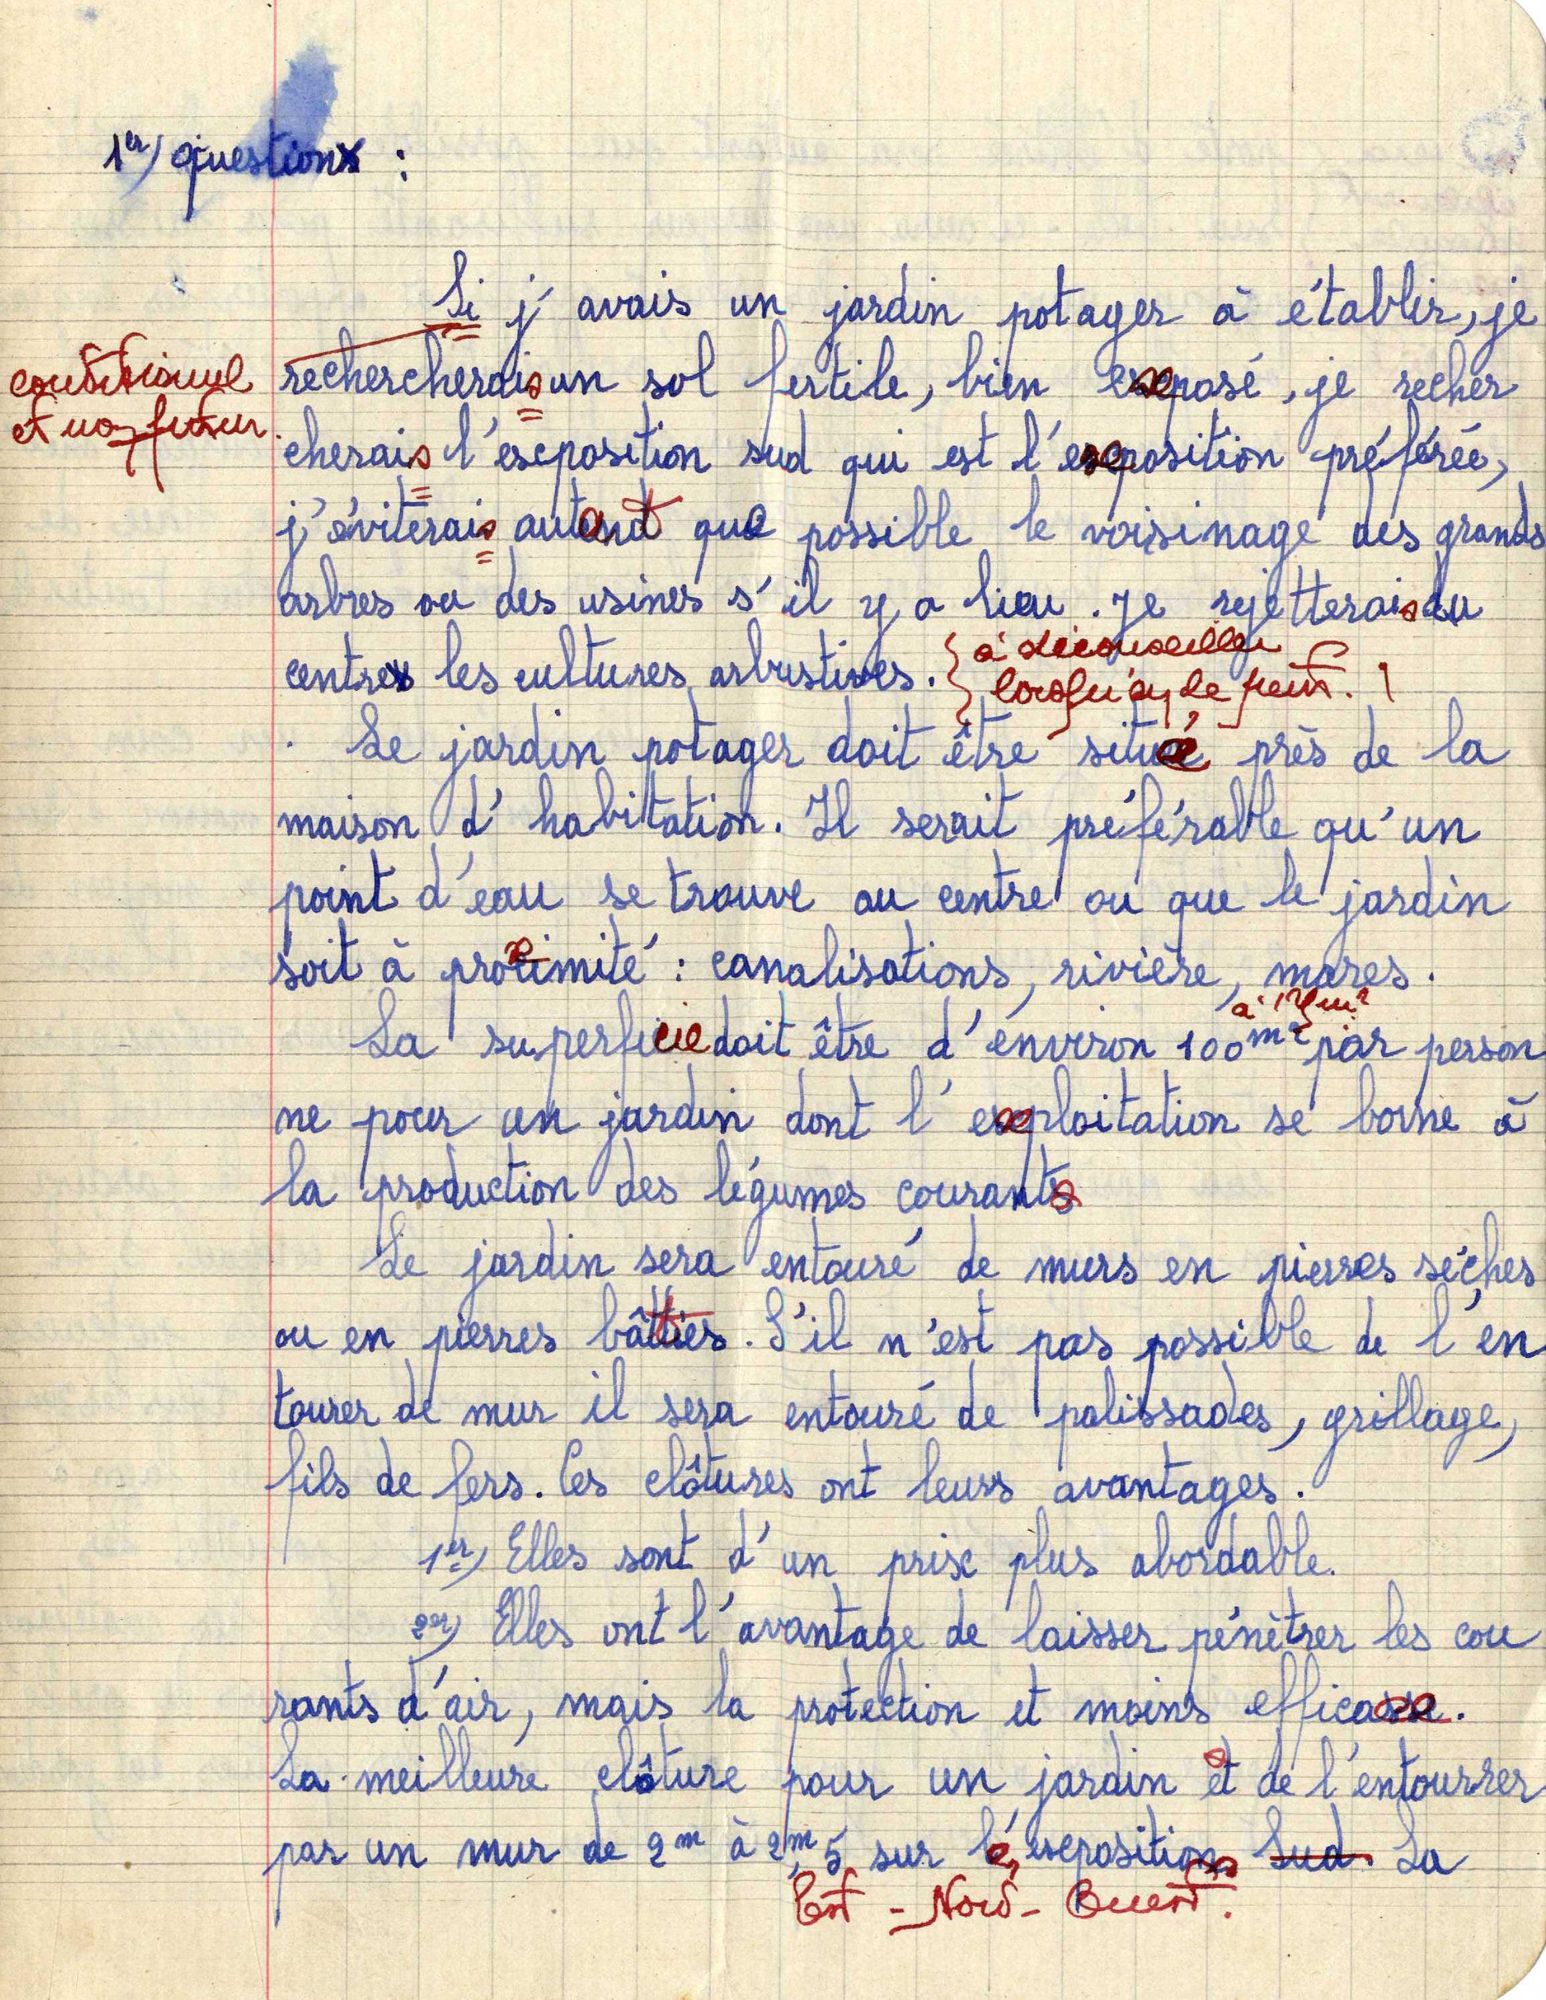 1er) question :
Si j'avais un jardin potager à établir, je
conditionnel
rechercherais un sol fertile, bien exposé, je recher
et non futur
cherais l'exposition sud qui est l'exposition préférée,
j'éviterais autant que possible le voisinage des grands
arbres ou des usines s'il y a lieu. Je rejetterais du
à déconseiller
centre les cultures arbustives.
Le jardin potager doit être situé près de la
maison d'habitation. Il serait préférable qu'un
point d'eau se trouve au centre ou que le jardin
soit à proximité : canalisations, rivière, mares.
La superficie doit être d'environ 100 m2 par person
ne pour un jardin dont l'exploitation se borne à
la production des légumes courants
Le jardin sera entouré de murs en pierres sèches
ou en pierres bâties. S'il n'est pas possible de l'en
tourer de mur il sera entouré de palissades, grillage,
fils de fers. Ces clôtures ont leurs avantages.
1er) Elles sont d'un prix plus abordable.
2er) Elles ont l'avantage de laisser pénètrer les cou
rants d'air, mais la protection et moins efficace.
La meilleure clôture pour un jardin est de l'entourrer
par un mur de 2m à 2m,5 sur les expositions Sud. La
Est - Nord - Ouest.